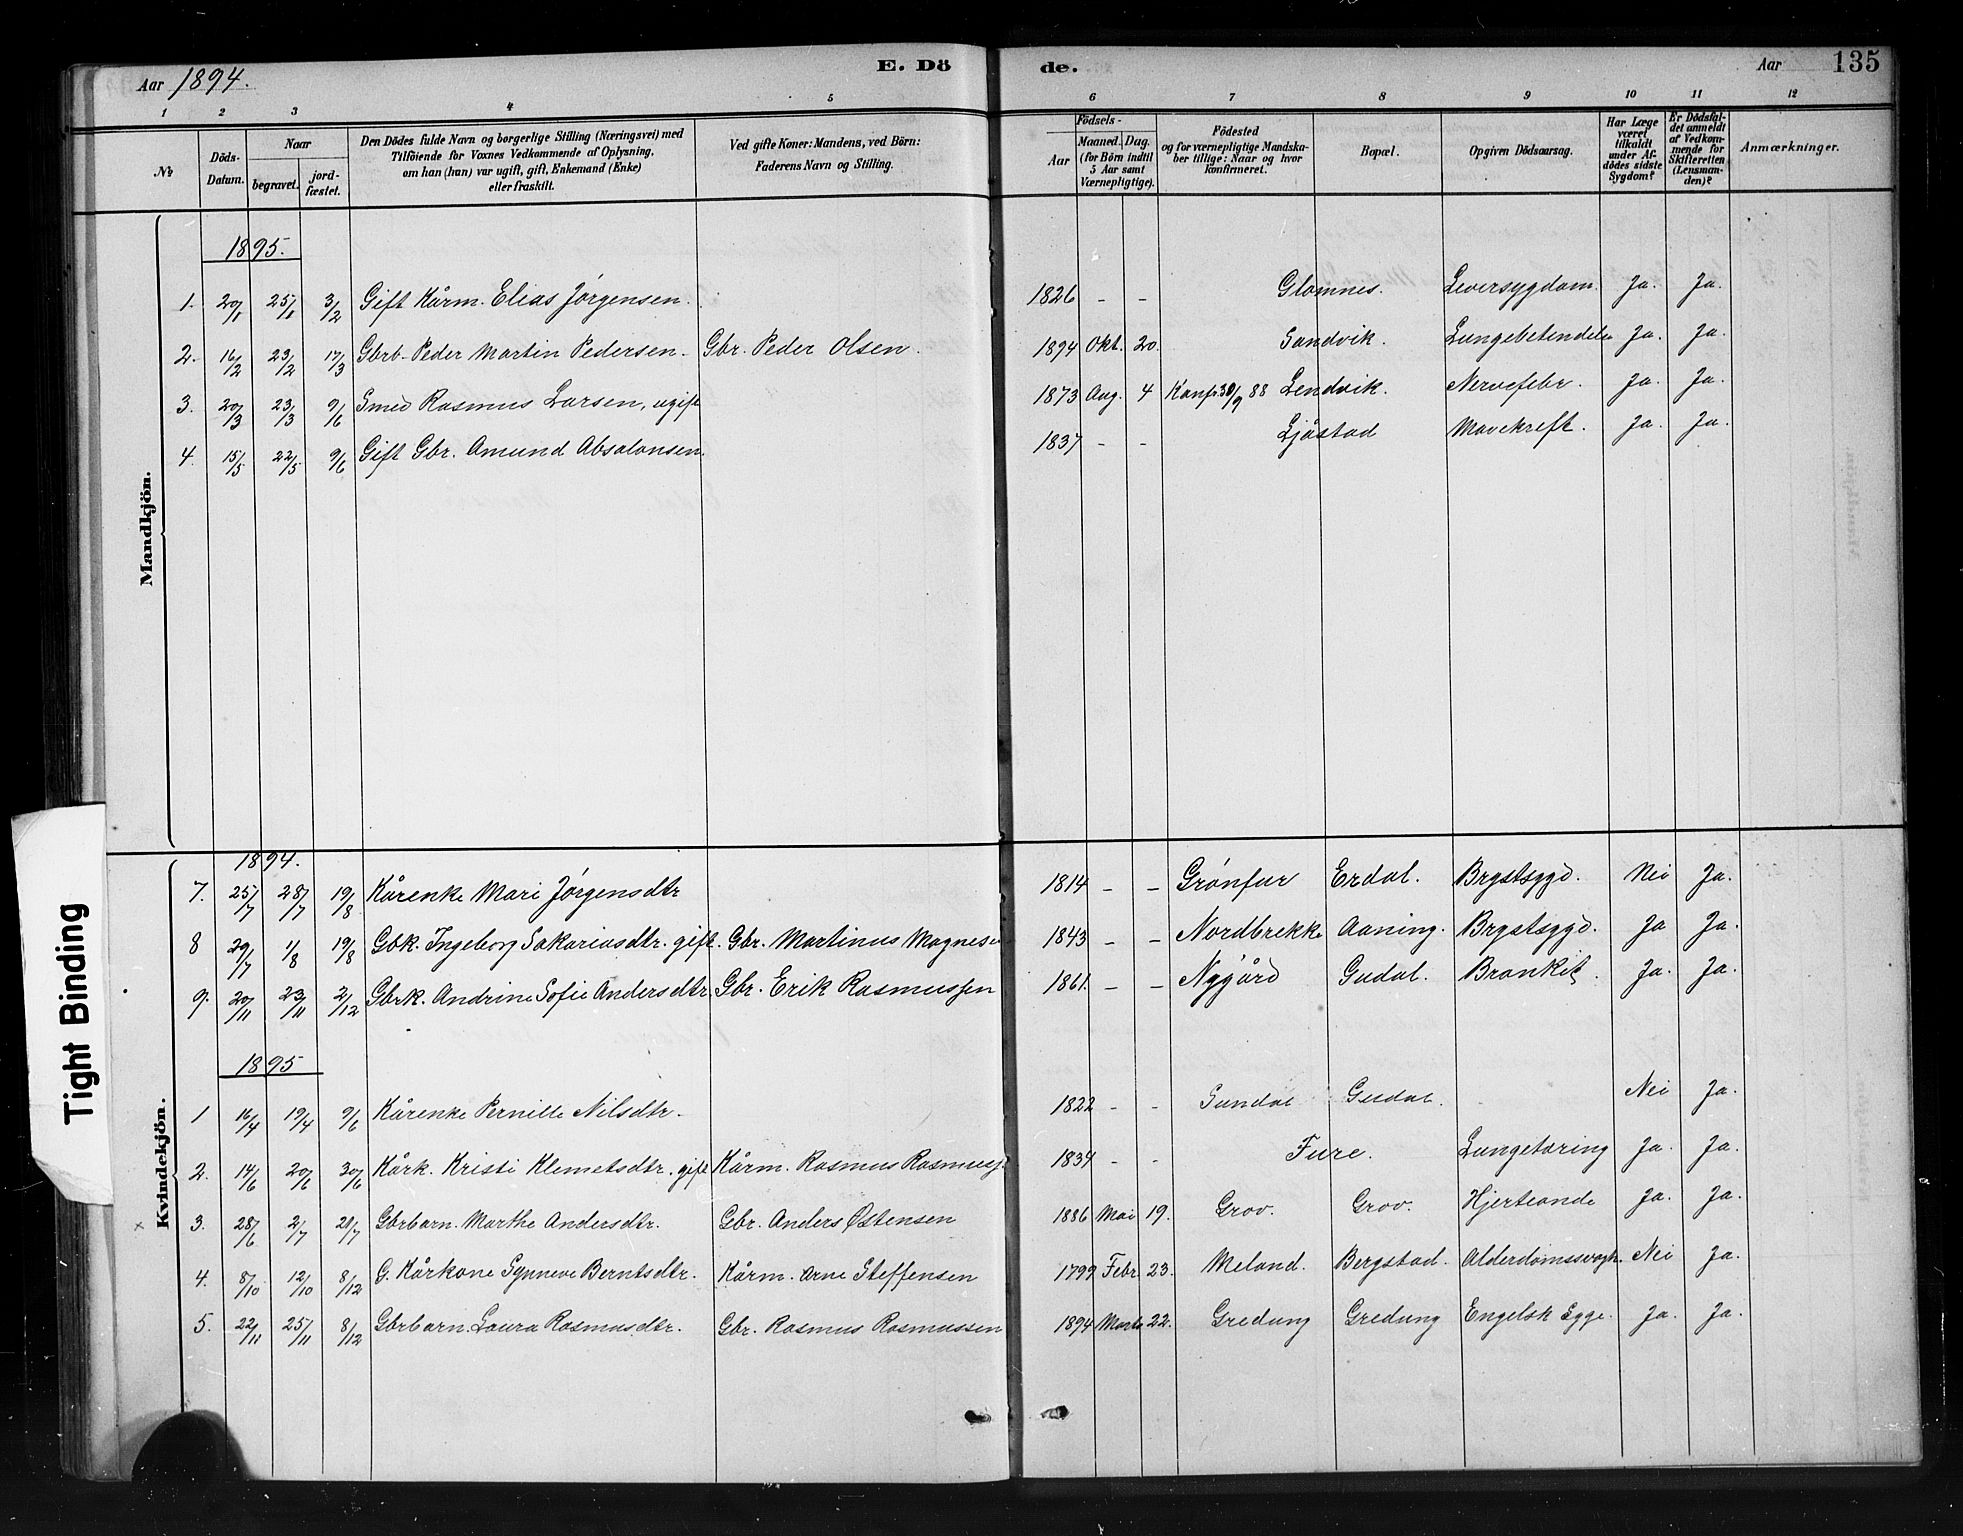 Aar 1894. E. Dö de. Aar 135
1 2 3 4 5 6 7 8 9 10 11 12
№ Döds-Datum. Naar begravet. jordfæstet. Den Dödes fulde Navn og borgerlige Stilling (Næringsvei) med Tilföiende for Voxnes Vedkommende af Oplysning, om han (hun) var ugift, gift, Enkemand (Enke) eller fraskilt. Ved gifte Koner: Mandens, ved Börn: Faderens Navn og Stilling. Födsels- Aar Maaned. Dag. (for Börn indtil 5 Aar samt Værnepligtige). Födested og for værnepligtige Mandskaber tillige: Naar og hvor konfirmeret. Bopæl. Opgiven Dödsaarsag. Har Læge været tilkaldt under Afdödes sidste Sygdom? Er Dödsfaldet anmeldt af Vedkommende for Skifteretten (Lensmanden)? Anmærkninger.
Mandkjön.
1895.
1. 20/1 25/1 3/2 Gift Kårm. Elias Jørgensen. 1826 - - Glomnes. Leversygdom. Ja. Ja.
2. 16/2 23/2 17/3 Gbrb. Peder Martin Pedersen. Gbr. Peder Olsen. 1894 Okt. 20. Sandvik. Lungebetendelse Ja. Ja.
3. 20/3 23/3 9/6 Smed Rasmus Larsen, ugift 1873 Aug. 4 Konf. 30/9 88 Lendvik. Nervefebr. Ja. Ja.
4. 15/5 22/5 9/6 Gift Gbr. Amund Absalonsen. 1837 - - Ljåstad Mavekreft. Ja. Ja.
Kvindekjön.
1894.
7. 25/7 28/7 19/8 Kårenke Mari Jørgensdtr 1814 - - Grønfur Erdal. Brystsygd. Nei Ja.
8 29/7 1/8 19/8 Gbk. Ingeborg Sakariasdtr. gift. Gbr. Martinus Magnesen 1843 - - Nordbrekke Aaning. Brystsygd. Ja Ja.
9. 20/11 23/11 2/12 Gbrk. Andrine Sofie Andersdtr. Gbr. Erik Rasmussen 1861. - - Nygård Gudal. Bronkit. Ja. Ja.
1895
1 16/4 19/4 9/6 Kårenke Pernille Nilsdtr. 1822 - - Sundal Gudal. Nei Ja.
2. 14/6 20/6 30/6 Kårk. Kristi Klemetsdtr. gift Kårm. Rasmus Rasmuss. 1834 - - Fure. Lungetæring Ja. Ja.
3. 28/6 2/7 21/7 Gbrbarn. Marthe Andersdtr. Gbr. Anders Østensen 1886 Mai 19. Grov. Grov. Hjerteonde Ja. Ja.
4. 8/10 12/10 8/12 G. Kårkone Synneve Berntsdtr. Kårm. Arne Steffensen 1799 Febr. 23. Meland. Bergstad. Alderdomssvagh. Nei Ja.
5. 22/11 25/11 8/12 Gbrbarn. Laura Rasmusdtr. Gbr. Rasmus Rasmussen 1894 Marts 22. Gredung Gredung Engelsk Syge. Ja. Ja.
Tight Binding